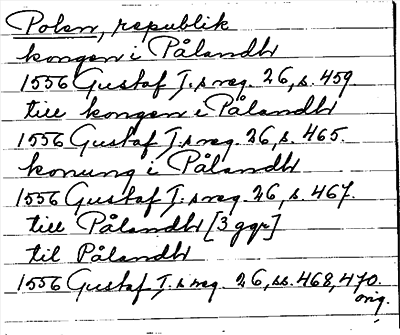 Polen, republik
kongen i Pålandh
1556 Gustaf I.s reg. 26, s. 459.
till kongen i Pålandh
1556 Gustaf I.s reg. 26, s. 465.
konung i Pålandh
1556 Gustaf I.s reg. 26, s. 467.
till Pålandh [3 ggr]
til Pålandh
1556 Gustaf I.s reg. 26, ss. 468, 470.
orig.